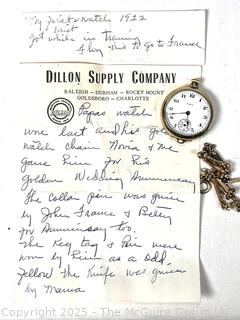 My first watch 1922
I bust
got while in training
I buy this to go to France
DILLON SUPPLY COMPANY
RALEIGH - DURHAM - ROCKY MOUNT
GOLDSBORO - CHARLOTTE
Papas watch
wore last and his
watch chain Novia & me
gave him for his
Golden Wedding Anniversary
The collar pen was given
by John France & Betty
for Anniversary too.
The Key tag & Pin were
worn by Him as a Odd
Fellow the Knife was given
by Mama
Copyright 2025 - The McGuire Group